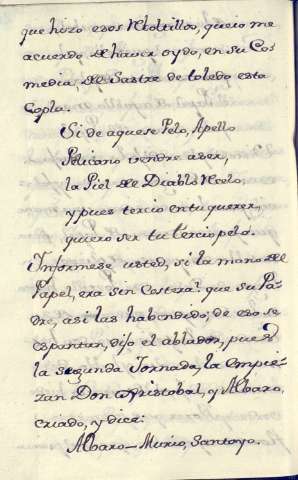 que hizo esos Retoltillos, que io me
acuerdo de haver oydo, en su Co-
media, del Sastre de toledo esta
Copla.
Si de aquese Pelo, Apello
Pelicano vendre a ser,
la Piel del Diablo Reelo,
y pues tercio en tu querer,
quiero ser tu terciopelo.
Informese usted, si la mano del
Papel, era sin costera? que su Pa-
dre, asi las ha bendido; de eso se
espantan, dijo el ablador, pues
la segunda Jornada, la empie-
zan Don Christobal, y Albaro,
criado, y dice:
Albaro - Murio, Santoyo.